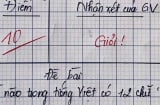 Điểm Nhận xét của GV
10 Giỏi!
Đề bài
nào trong tiếng Việt có 1,2 chữ